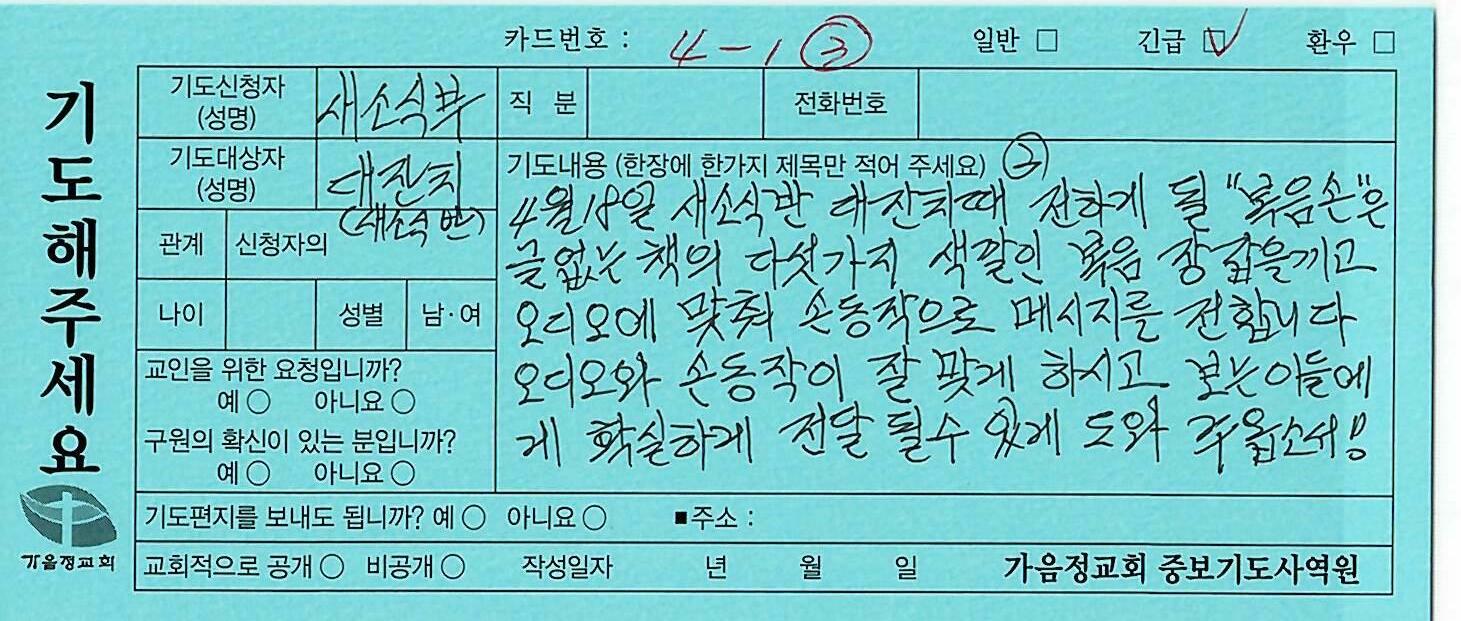 카드번호 : 4-1 ③ 일반 □ 긴급 ☑ 환우 □
기도해주세요
가음정교회
기도신청자 (성명) 새소식부 직 분 전화번호
기도대상자 (성명) 대잔치 (새소식반)
관계 신청자의
나이 성별 남·여
교인을 위한 요청입니까?
예 ○ 아니요 ○
구원의 확신이 있는 분입니까?
예 ○ 아니요 ○
기도내용 (한장에 한가지 제목만 적어 주세요) ③
4월18일 새소식반 대잔치때 전하게 될 "복음손"은
글없는 책의 다섯가지 색깔인 복음 장갑을끼고
오디오에 맞춰 손동작으로 메시지를 전합니다
오디오와 손동작이 잘 맞게 하시고 보는이들에
게 확실하게 전달 될수 있게 도와 주옵소서!
기도편지를 보내도 됩니까? 예 ○ 아니요 ○ ■주소 :
교회적으로 공개 ○ 비공개 ○ 작성일자 년 월 일 가음정교회 중보기도사역원